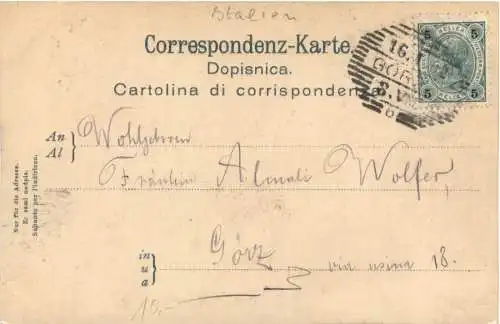 Italien
Correspondenz-Karte.
Dopisnica.
Cartolina di corrispondenza
5 5
5 5
16.
GÖR
8.V
6
An
Al
Wohlgeboren
Fräulein Wolfer,
in
u
a
Görz
via usina 18.
10.-
Nur für die Adresse.
Za sami naslov.
Soltanto per l'indirizzo.